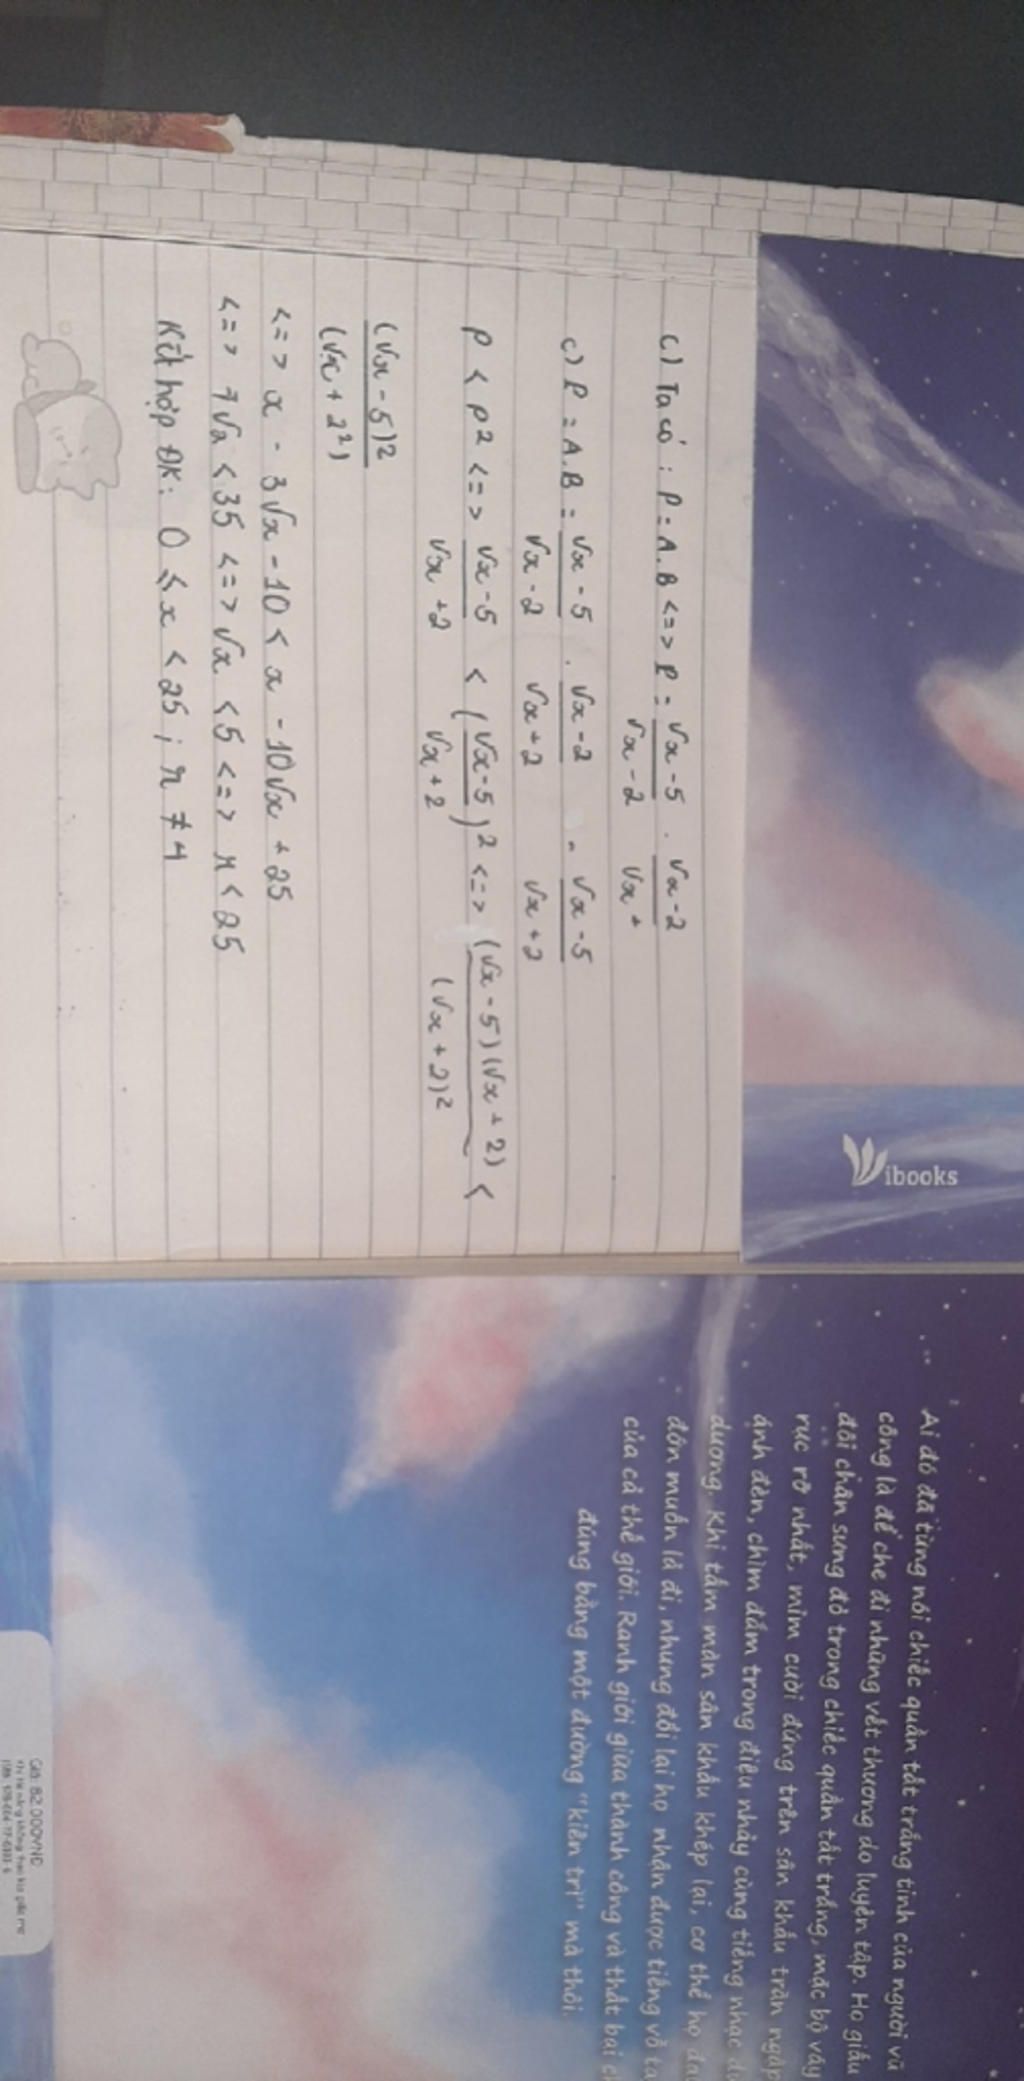 c) Ta có : P = A.B <=> P = √x - 5 / √x - 2 . √x - 2 / √x +
c) P = A.B = √x - 5 / √x - 2 . √x - 2 / √x + 2 = √x - 5 / √x + 2
P < P² <=> √x - 5 / √x + 2 < (√x - 5 / √x + 2)² <=> (√x - 5)(√x + 2) / (√x + 2)² <
(√x - 5)2 / (√x + 2²)
<=> x - 3√x - 10 < x - 10√x + 25
<=> 7√x < 35 <=> √x < 5 <=> x < 25
Kết hợp ĐK: 0 ≤ x < 25 ; x ≠ 4
ibooks
Ai đó đã từng nói chiếc quần tất trắng tinh của người vũ
công là để che đi những vết thương do luyện tập. Họ giấu
đôi chân sưng đỏ trong chiếc quần tất trắng, mặc bộ váy
rực rỡ nhất, mỉm cười đứng trên sân khấu tràn ngập
ánh đèn, chìm đắm trong điệu nhảy cùng tiếng nhạc du
dương. Khi tấm màn sân khấu khép lại, cơ thể họ đau
đớn muốn lả đi, nhưng đổi lại họ nhận được tiếng vỗ ta
của cả thế giới. Ranh giới giữa thành công và thất bại ch
đúng bằng một đường "kiên trì" mà thôi.
Giá: 82.000VNĐ